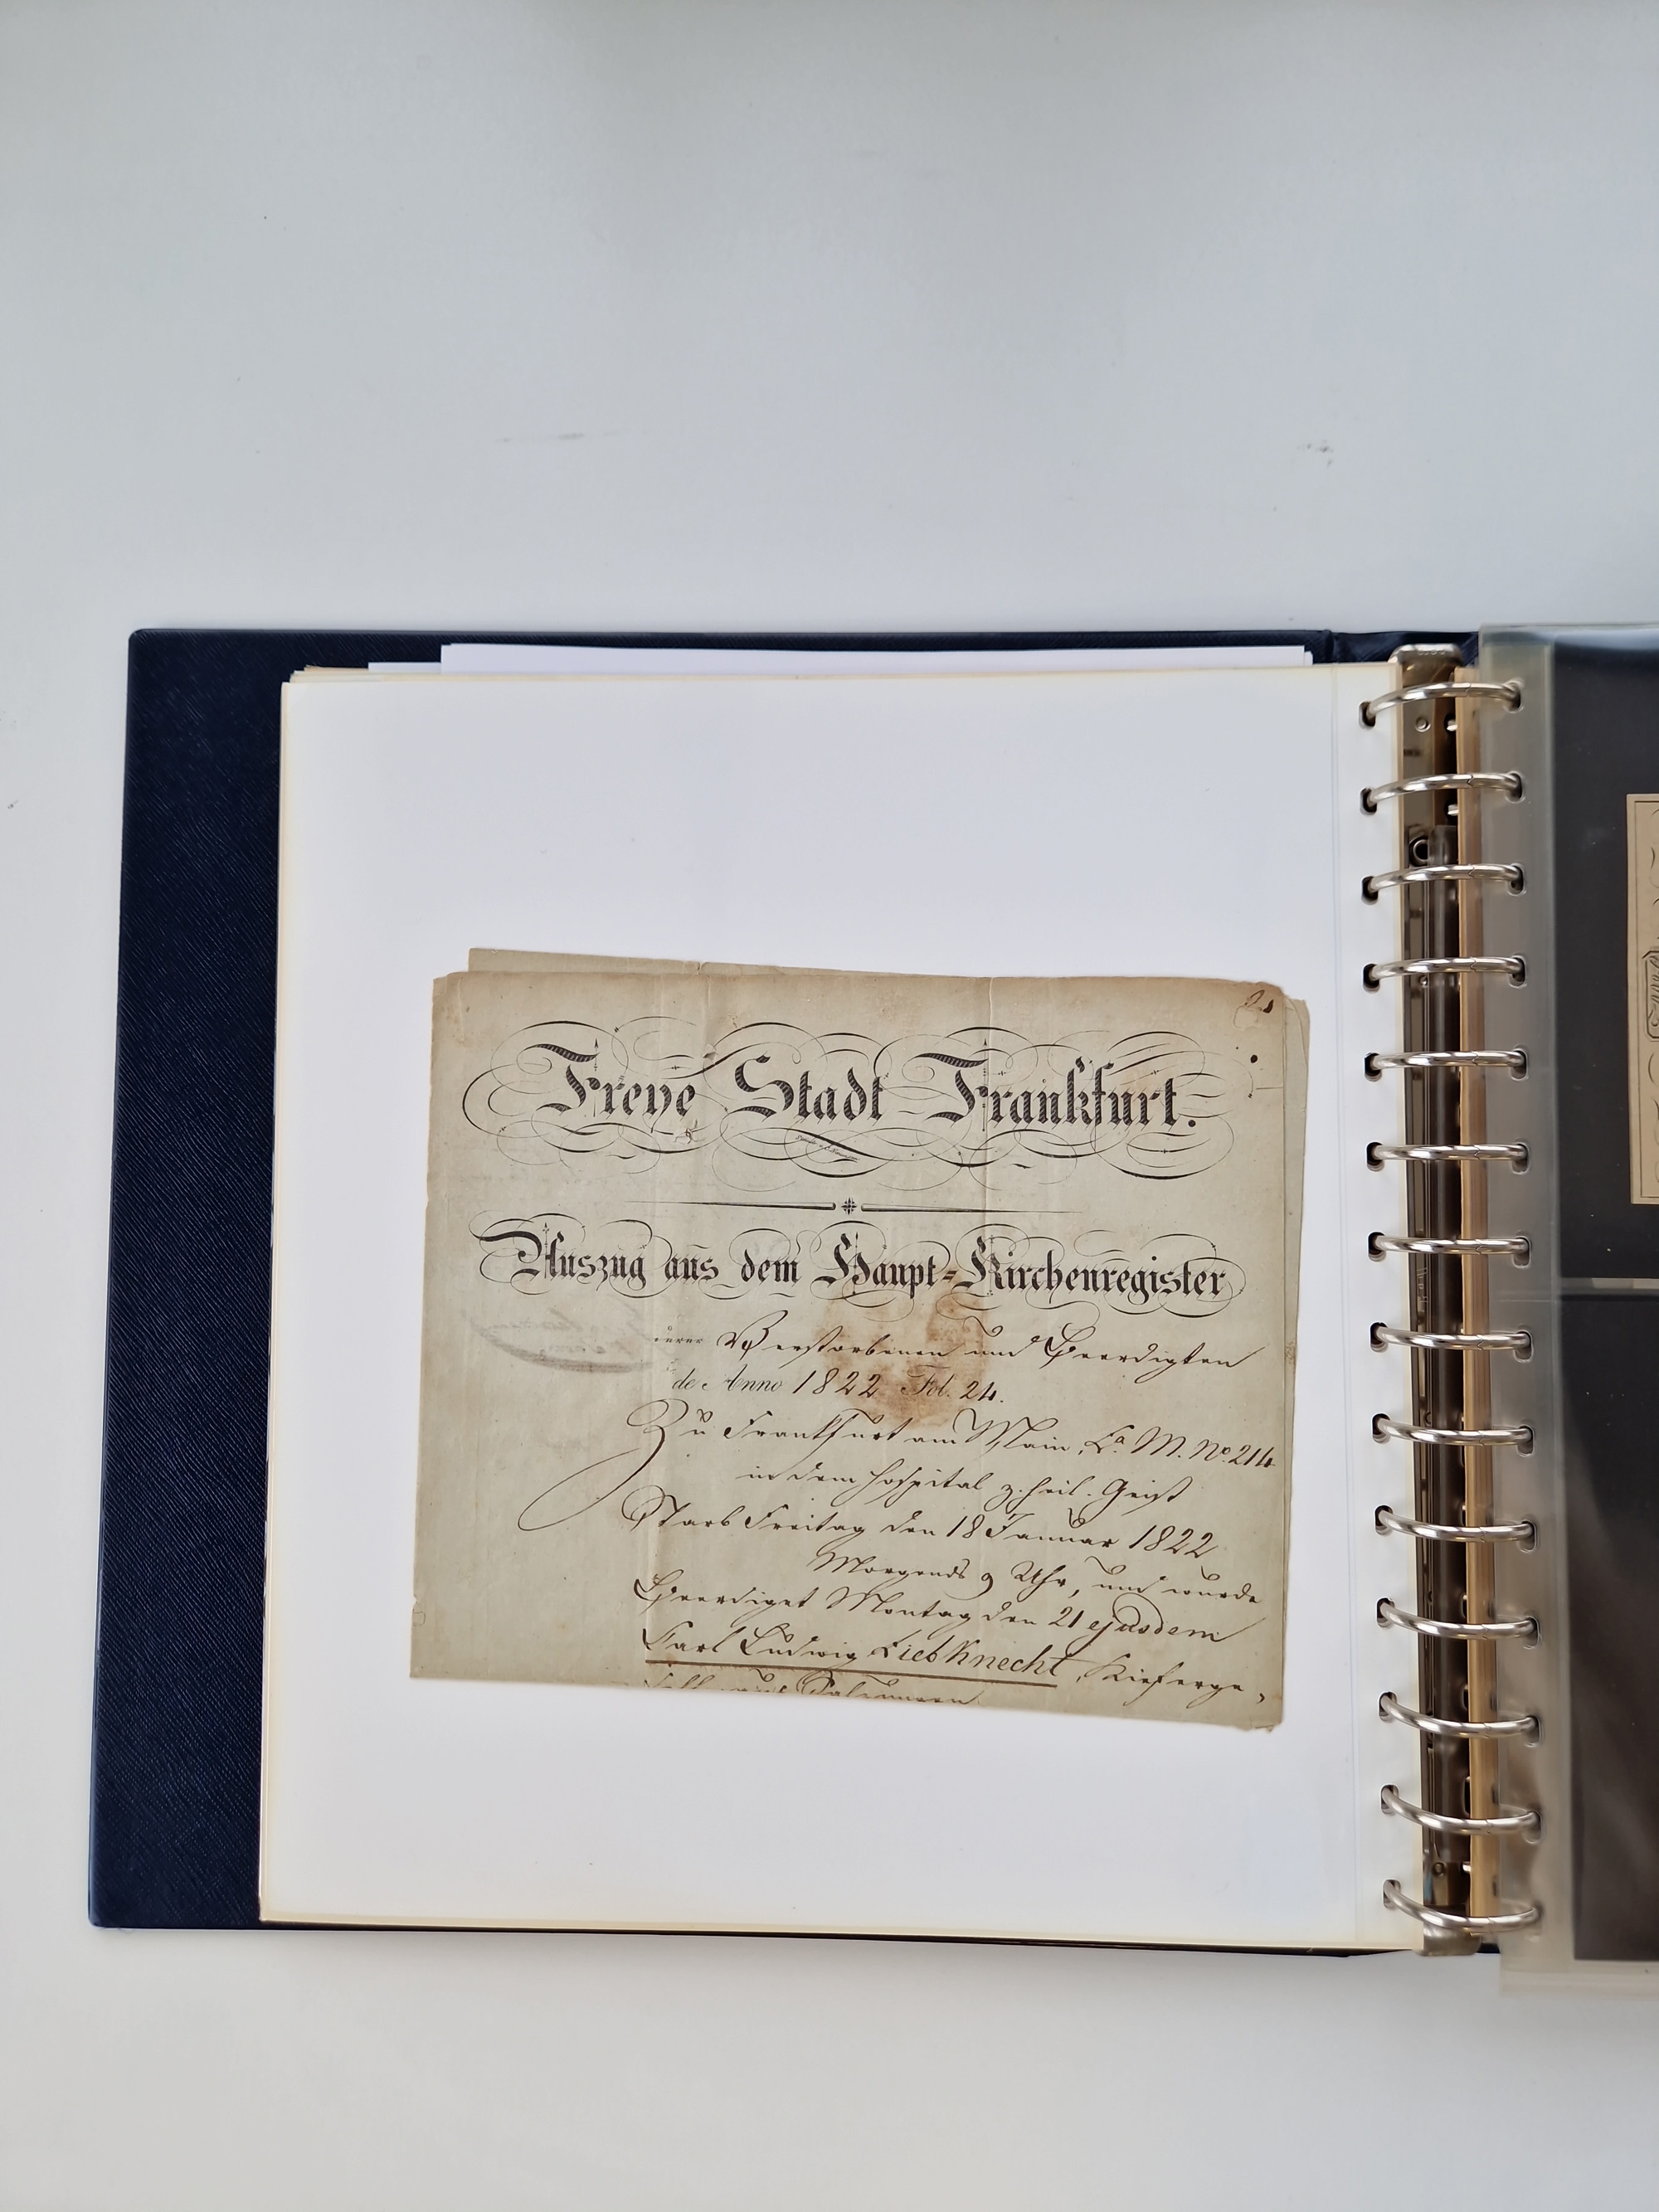 Freye Stadt Frankfurt.
Auszug aus dem Haupt-Kirchenregister
derer Verstorbenen und Beerdigten
de Anno 1822 Fol. 24.
Zu Frankfurt am Main, La. M. No. 214
in dem Hospital z. heil. Geist
Starb Freitag den 18 Januar 1822
Morgends 9 Uhr, und wurde
Beerdiget Montag den 21 ejusdem
Carl Ludwig Liebknecht, Kieferge,
sell aus